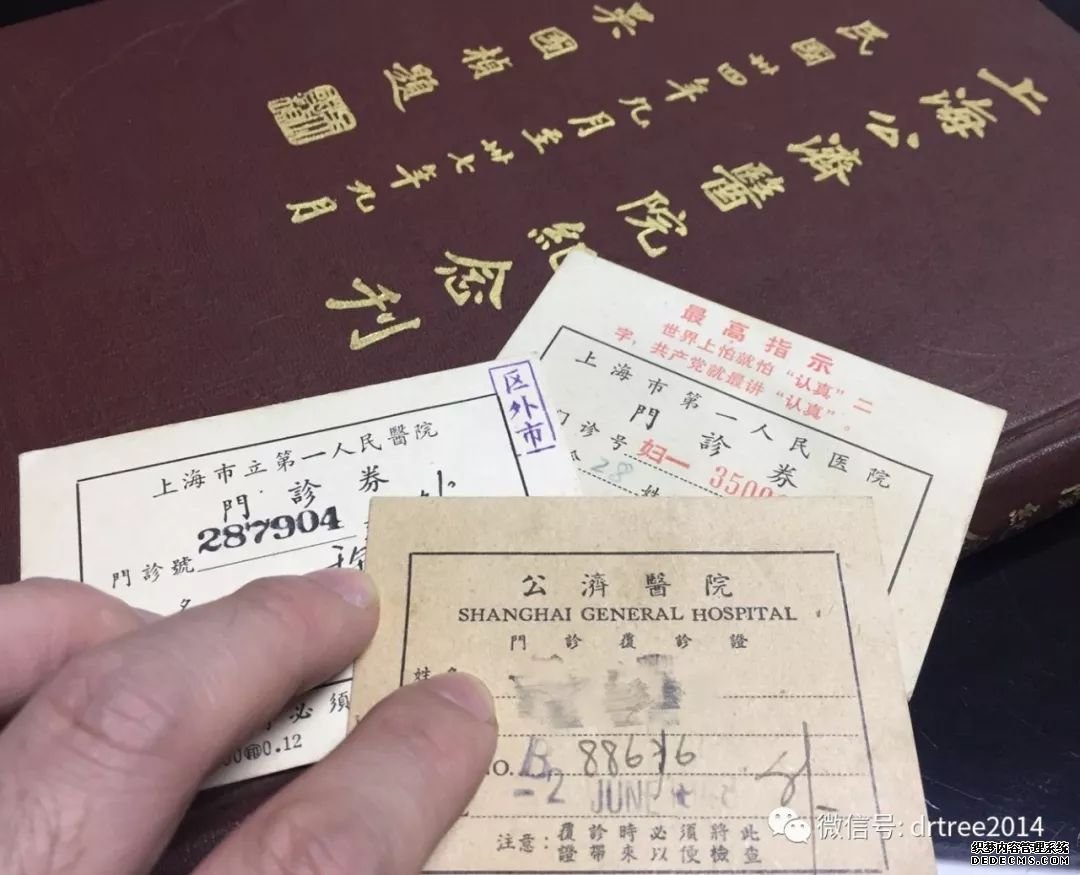 上海公濟醫院紀念刊
民國卅四年九月至卅七年九月
吳國楨題
最高指示
世界上怕就怕“认真”二
字，共产党就最讲“认真”。
上海市第一人民医院
門診券
门诊号 妇一 3500
28
姓
区外市
上海市立第一人民醫院
門診券
門診號 287904
名
必須
印0.12
公濟醫院
SHANGHAI GENERAL HOSPITAL
門診覆診證
姓名
NO. B 88696
-2 JUN
注意：覆診時必須將此
證帶來以便檢查
微信号: drtree2014
织梦内容管理系统
DEDECMS.COM